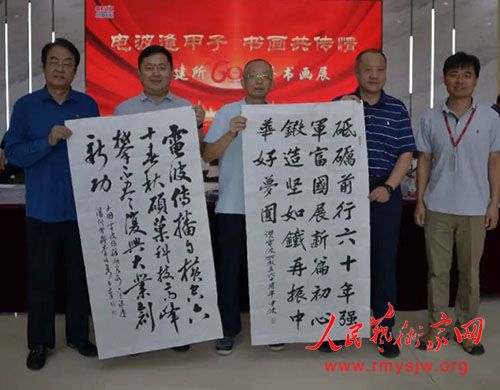 电波逢甲子 书画共传情
建所60 书画展
電波传播 横空六
十春秋硕 科技高峰
攀 复興大業創
新功
砥礪前行六十年强
軍 國展新篇初心
鍛造堅如鐵再振中
華好夢圓
人民藝術家网
www.rmysjw.org